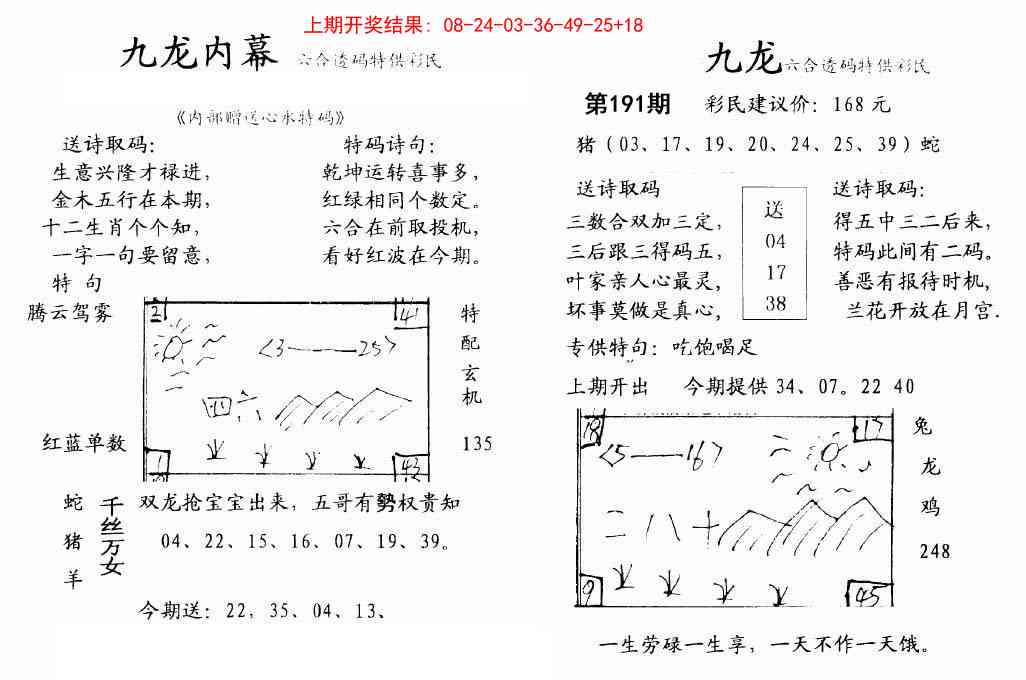 上期开奖结果：08-24-03-36-49-25+18
九龙内幕 六合透码特供彩民
《内部赠送心水特码》
送诗取码：
生意兴隆才禄进，
金木五行在本期，
十二生肖个个知，
一字一句要留意，
特码诗句：
乾坤运转喜事多，
红绿相同个数定。
六合在前取投机，
看好红波在今期。
特 句
腾云驾雾
红蓝单数
21
41
<3——25>
四六
1
43
特配玄机
135
蛇猪羊
千丝万女
双龙抢宝宝出来，五哥有勢权贵知
04、22、15、16、07、19、39。
今期送：22，35、04、13、
九龙六合透码特供彩民
第191期 彩民建议价：168元
猪（03、17、19、20、24、25、39）蛇
送诗取码
三数合双加三定，
三后跟三得码五，
叶家亲人心最灵，
坏事莫做是真心，
送
04
17
38
送诗取码：
得五中三二后来，
特码此间有二码。
善恶有报待时机，
兰花开放在月宫.
专供特句：吃饱喝足
上期开出 今期提供 34、07。22 40
18
17
<5——16>
二八十
9
45
兔
龙
鸡
248
一生劳碌一生享，一天不作一天饿。